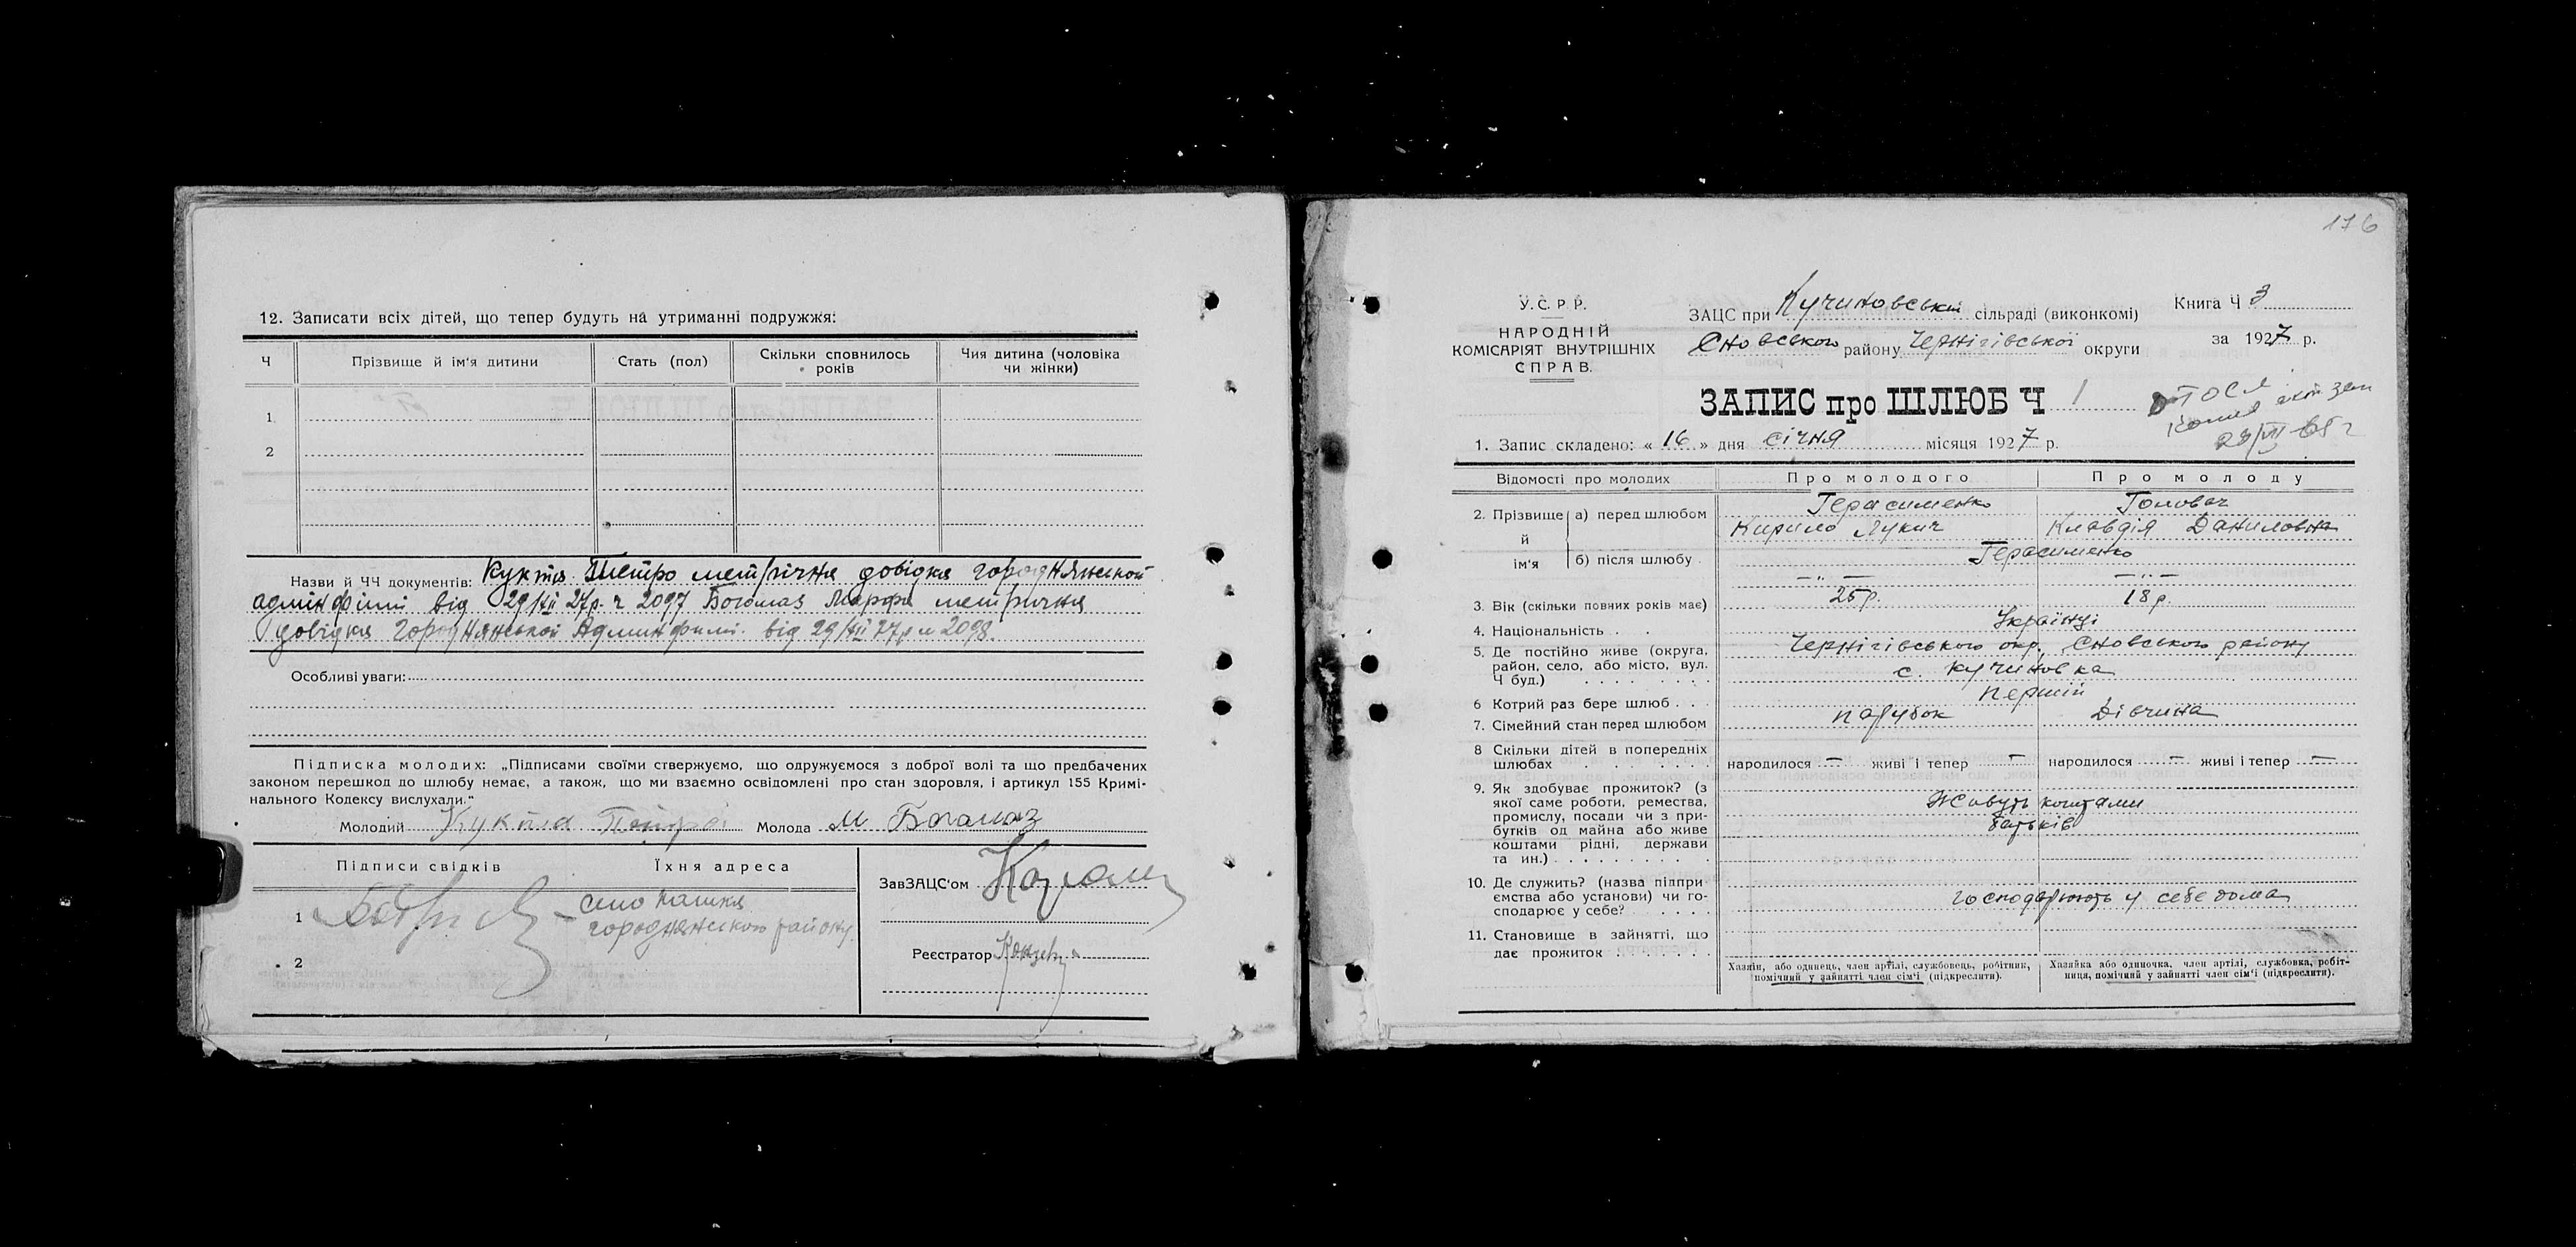 12. Записати всіх дітей, що тепер будуть на утриманні подружжя:
Ч Прізвище й ім'я дитини Стать (пол) Скільки сповнилось років Чия дитина (чоловіка чи жінки)
1
2
Назви й ЧЧ документів: Кукта Петро метрична довідка Городнянської
адмінфіллі від 29/XII 27р. ч 2097 Богомаз Марфа метрична
довідка Городнянської Админфилі. від 29/XII 27р ч 2098
Особливі уваги:
Підписка молодих: „Підписами своїми стверджуємо, що одружуємося з доброї волі та що предбачених
законом перешкод до шлюбу немає, а також, що ми взаємно освідомлені про стан здоров'я, і артикул 155 Кримі-
нального Кодексу вислухали."
Молодий Кукта Петро Молода М Богомаз
Підписи свідків Їхня адреса
ЗавЗАЦС'ом
1 село
городнянського району
Реєстратор
2
176
У.С.Р.Р.
НАРОДНІЙ
КОМІСАРІЯТ ВНУТРІШНІХ
СПРАВ.
ЗАЦС при Кучиновській сільраді (виконкомі)
Сновського району Чернігівської округи
Книга Ч 3
за 1927 р.
ЗАПИС про ШЛЮБ Ч 1
копия
1. Запис складено: « 16 » дня січня місяця 1927 р.
Відомості про молодих Про молодого Про молоду
2. Прізвище й ім'я а) перед шлюбом Герасименко Головач
Кирило Лукич Клавдія Даниловна
б) після шлюбу Герасименко
— „ — — „ —
3. Вік (скільки повних років має) 25р. 18р.
4. Національність . . Українці
5. Де постійно живе (округа, район, село, або місто, вул. Ч буд.) Чернігівського окр. Сновського району
с. Кучиновка
6 Котрий раз бере шлюб . . . першій
7. Сімейний стан перед шлюбом парубок Дівчина
8 Скільки дітей в попередніх шлюбах народилося — живі і тепер — народилося — живі і тепер —
9. Як здобуває прожиток? (з якої саме роботи, ремества, промислу, посади чи з прибутків од майна або живе коштами рідні, держави та ин.) Живуть коштами
батьків
10. Де служить? (назва підпри-
ємства або установи) чи го-
сподарює у себе? господарюють у себе дома
11. Становище в зайнятті, що
дає прожиток
Хазяїн, або одинець, член артілі, службовець, робітник, помічний у зайнятті член сім'ї (підкреслити).
Хазяйка або одиночка, член артілі, службовка, робіт-
ниця, помічний у зайнятті член сім'ї (підкреслити).